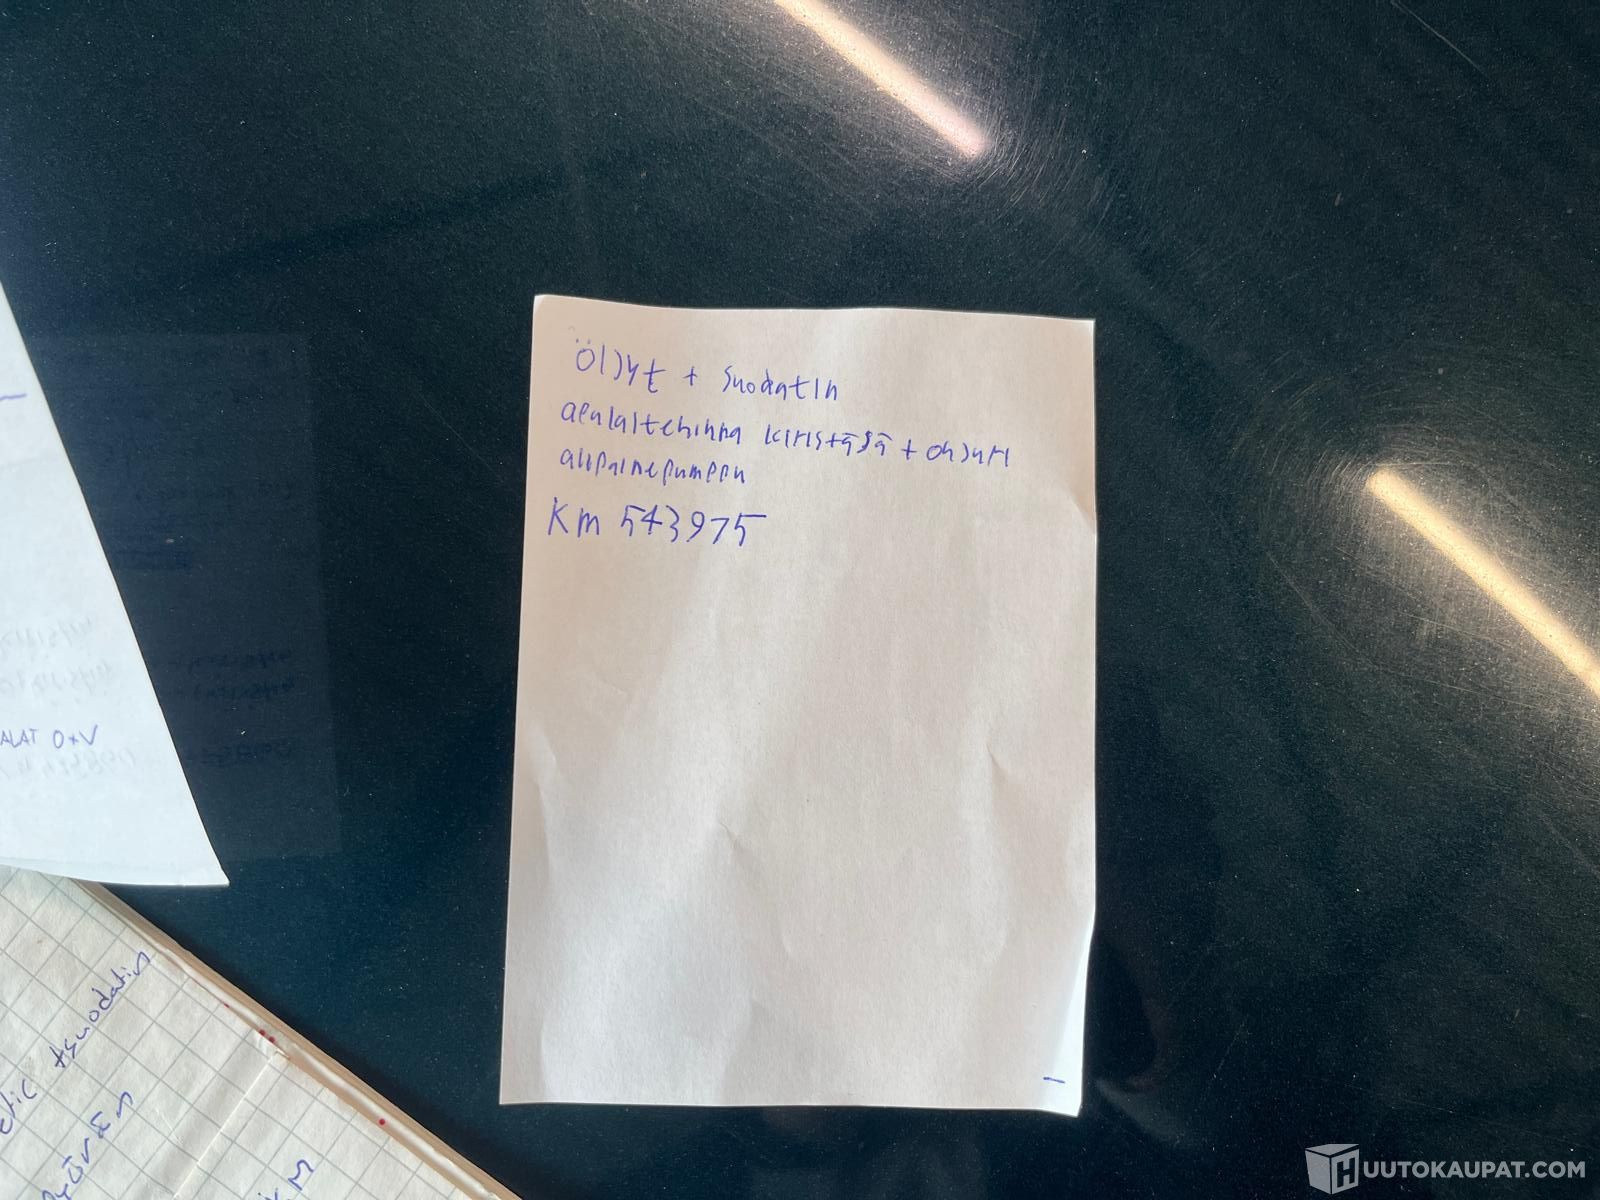 Öljyt + suodatin
apulaitehihna kiristäjä + ohjuri
alipainepumppu
Km 543975
ALAT O+V
+suodatin
HUUTOKAUPAT.COM